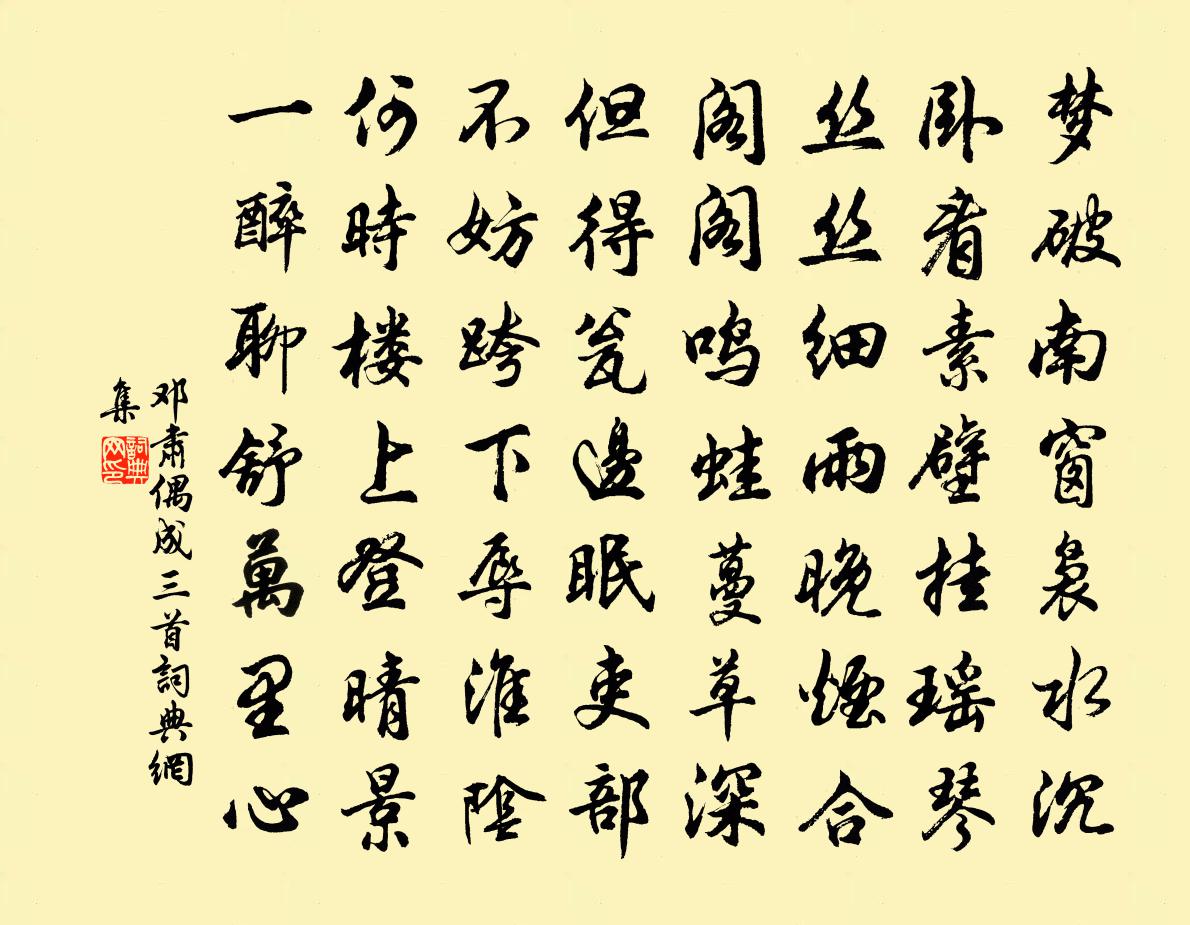 梦破南窗袅水沉
卧看素壁挂瑶琴
丝丝细雨晚烟合
阁阁鸣蛙蔓草深
但得瓮邊眠吏部
不妨跨下辱淮陰
何時楼上登晴景
一醉聊舒萬里心
邓肃偶成三首詞典網
集
詞典网印